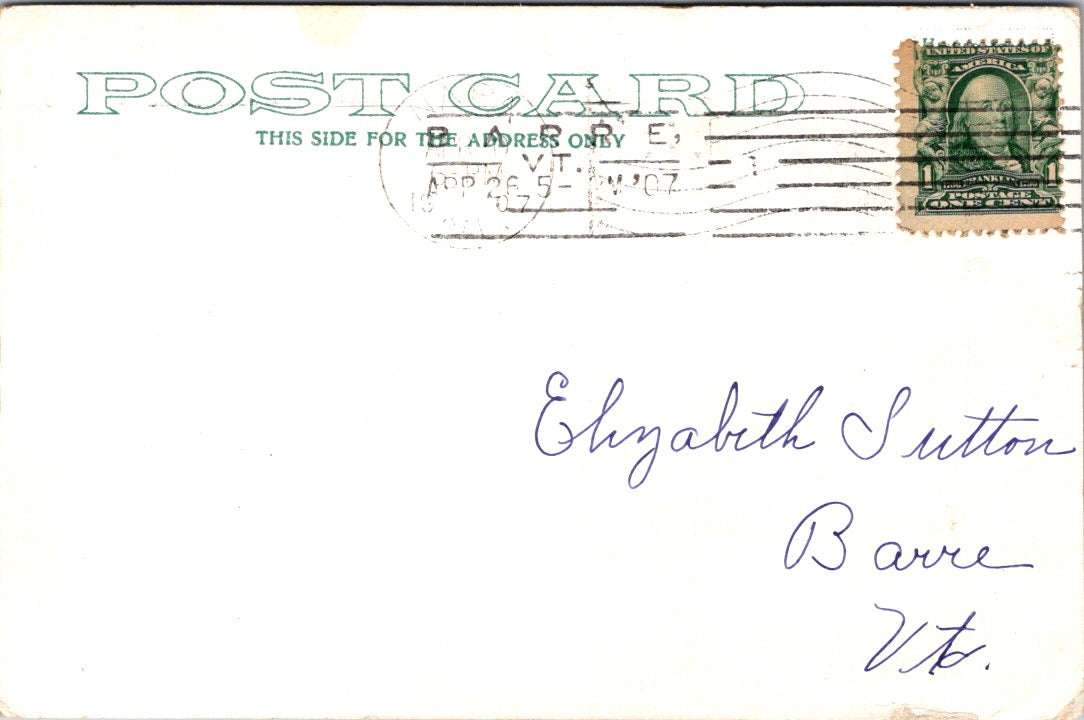 POST CARD
THIS SIDE FOR THE ADDRESS ONLY
BARRE,
VT.
APR 26 5- M '07
19 07
1
UNITED STATES OF
AMERICA
1 FRANKLIN 1
POSTAGE
ONE CENT
Elizabeth Sutton
Barre
Vt.